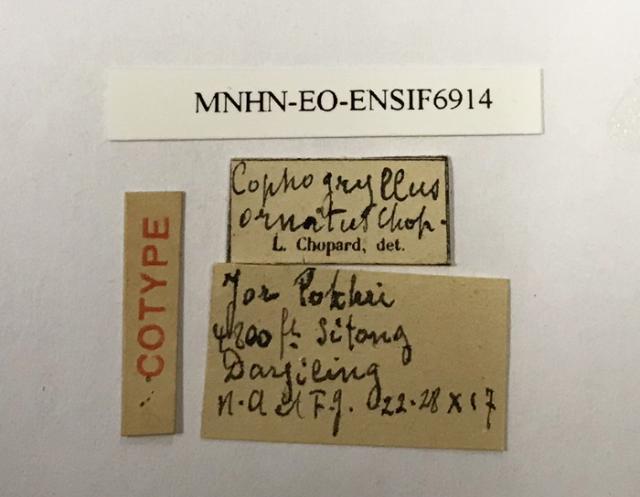 MNHN-EO-ENSIF6914
Cophogryllus
ornatus Chop.
L. Chopard, det.
COTYPE
Jor Pokhri
4800 ft. Sitong
Darjiling
N.A et F.G. 22-28 X 17